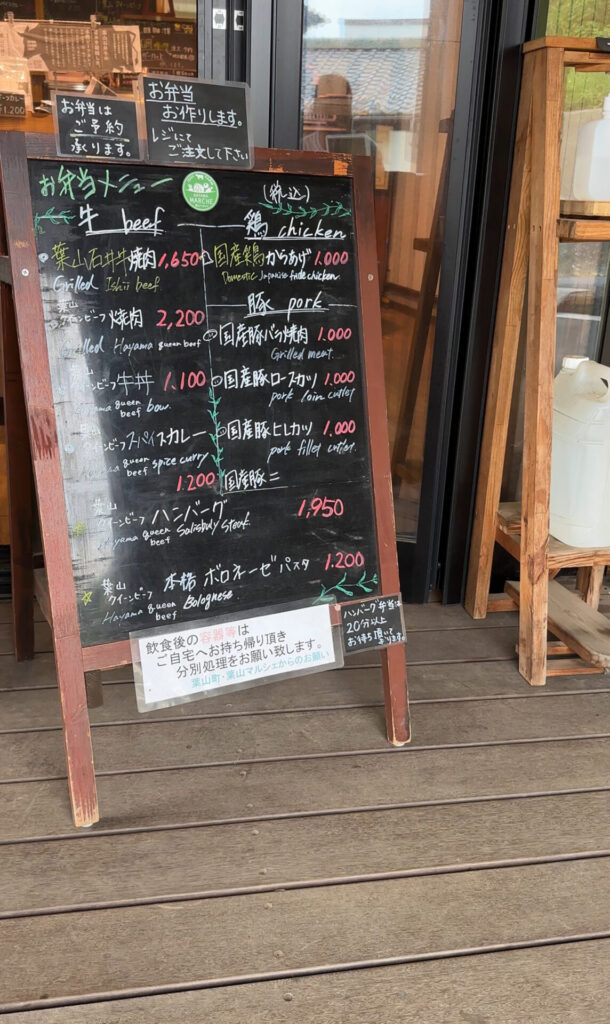 お弁当は
ご予約
承ります。
お弁当
お作りします。
レジにて
ご注文して下さい
1.200
お弁当メニュー
MARCHE
(税込)
牛 beef
葉山石井牛焼肉 1,650
Grilled Ishii beef
葉山
クイーンビーフ 焼肉 2,200
lled Hayama queen beef
葉山
クイーンビーフ 牛丼 1.100
yama queen
beef bow.
葉山
クイーンビーフ スパイスカレー
yama queen
beef spice curry
1.200
葉山
クイーンビーフ ハンバーグ 1,950
Hayama queen
beef Salisbuly steak
葉山
クイーンビーフ 本格ボロネーゼパスタ 1.200
Hayama queen
beef Bolognese
鶏 chicken
国産鶏からあげ 1.000
Domestic Japanise fride chicken
豚 pork
国産豚バラ焼肉 1.000
Grilled meat.
国産豚ロースカツ 1.000
pork loin cutlet
国産豚ヒレカツ 1.000
pork fillet cutlet.
国産豚
飲食後の容器等は
ご自宅へお持ち帰り頂き
分別処理をお願い致します。
葉山町・葉山マルシェからのお願い
ハンバーグ弁当は
20分以上
お待ち頂いて
おります。